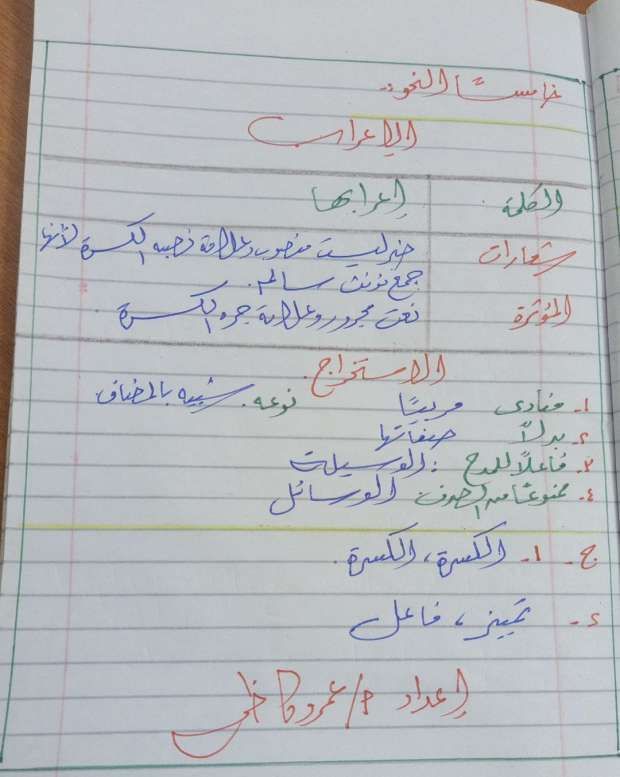 خامسًا النحو:-
الإعراب
الكلمة إعرابها
شعارات خبر ليست منصوب وعلامة نصبه الكسرة لأنها
جمع مؤنث سالم.
المؤثرة نعت مجرور وعلامة جره الكسرة.
الاستخراج.
١- منادى مربيًا نوعه. شبيه بالمضاف
٢- بدلًا صفحاتها
٣- فاعلًا للمدح : الوسيلة
٤- ممنوعًا من الصرف الوسائل
ج- ١- الكسرة، الكسرة.
٢- تمييز، فاعل
إعداد أ/ عمرو كاظم